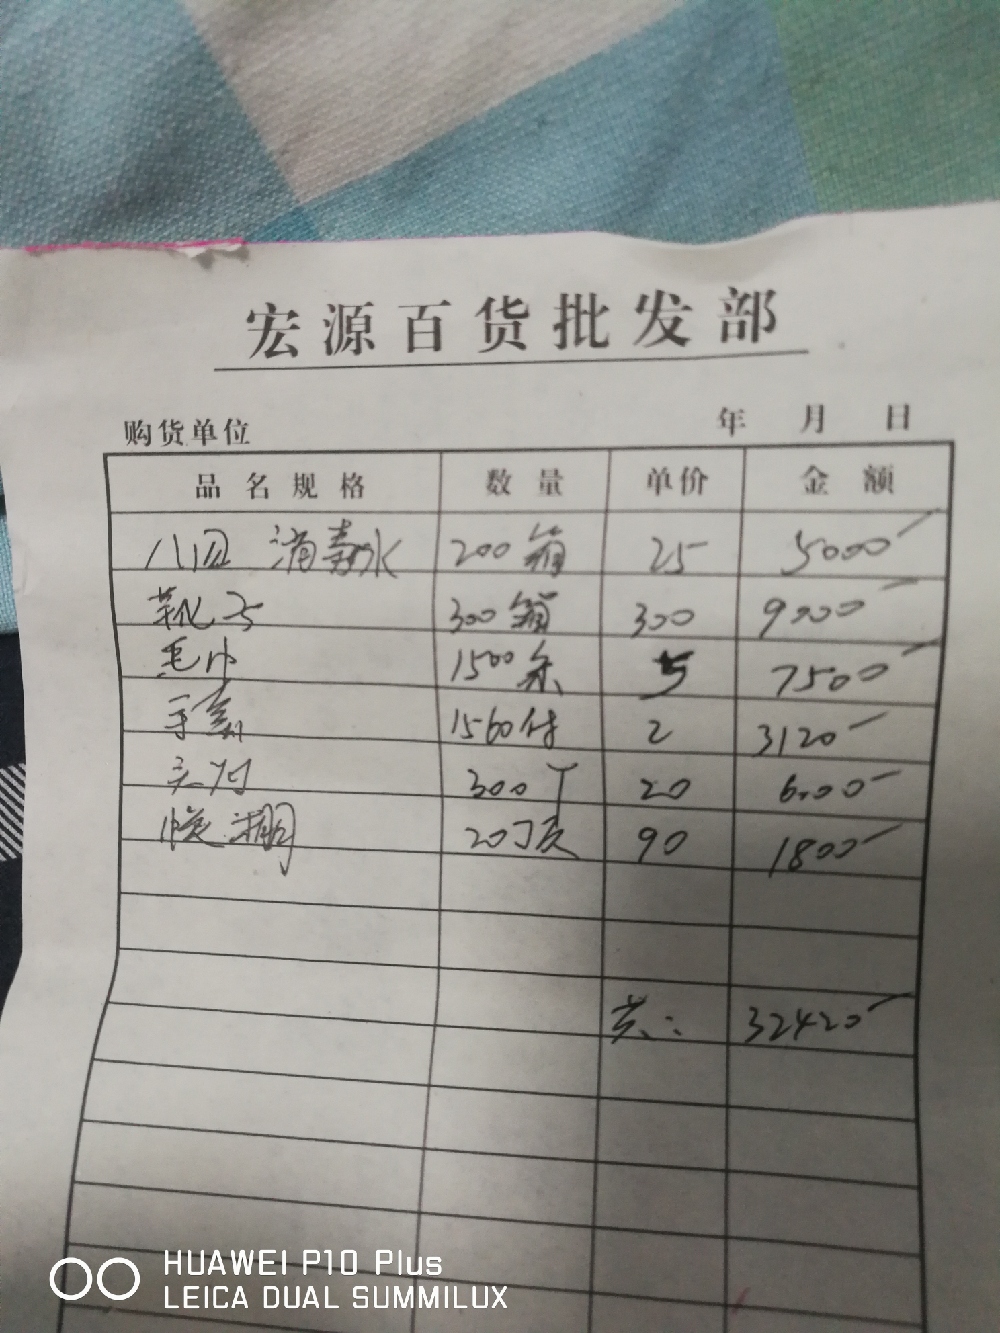 宏源百货批发部
购货单位 年 月 日
品名规格 数量 单价 金额
八四 消毒水 200箱 25 5000
靴子 300箱 300 9000
毛巾 1500条 5 7500
手套 1560付 2 3120
300个 20 6000
20顶 90 1800
共: 32420
HUAWEI P10 Plus
LEICA DUAL SUMMILUX